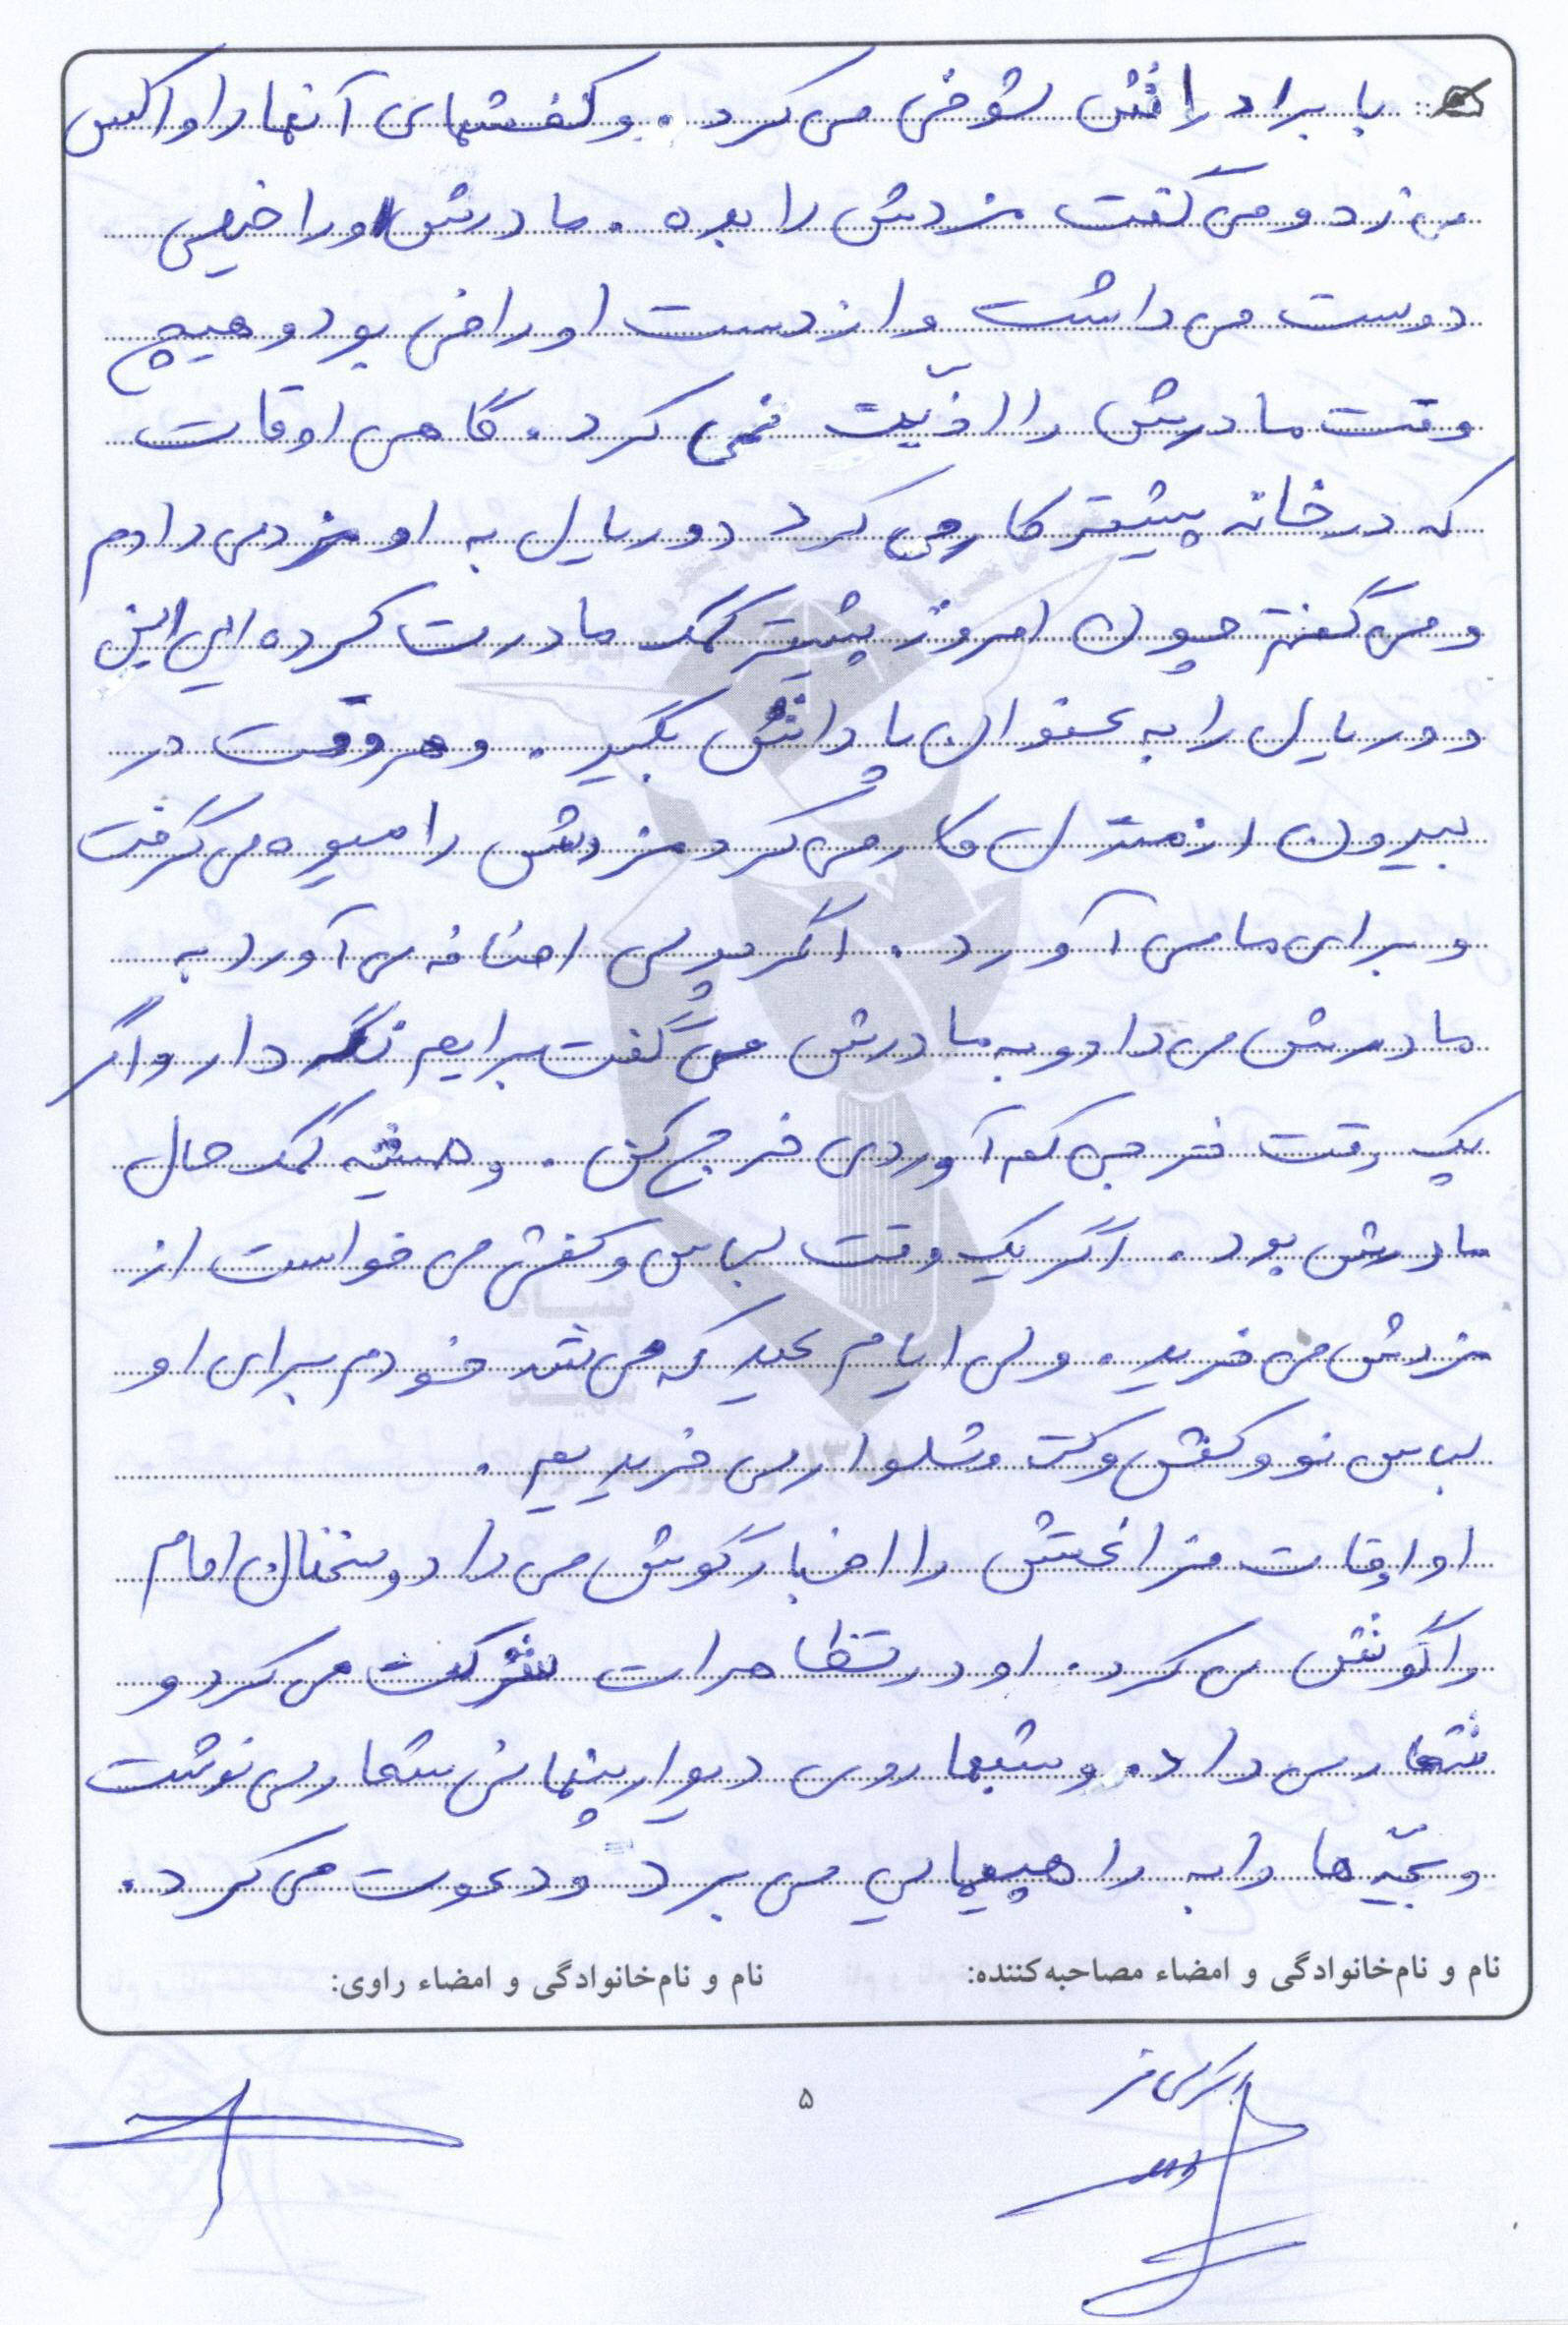 با برادرانش شوخی می کرد. و کفشهای آنها را واکس
می زد و می گفت مزدش را بده. مادرش او را خیلی
دوست می داشت و از دست او راضی بود و هیچ
وقت مادرش را اذیّت نمی کرد. گاهی اوقات
که در خانه بیشتر کار می کرد دو ریال به او مزد می دادم
و می گفتم چون امروز بیشتر کمک مادرت کرده ایی این
دو ریال را به عنوان پاداش بگیر. و هر وقت در
بیرون از منزل کار می کرد مزدش را میوه می گرفت
و برای ما می آورد. اگر پولی اضافه می آورد به
مادرش می داد و به مادرش می گفت برایم نگه دار و اگر
یک وقت خرجی کم آوردی خرج کن. و همیشه کمک حال
مادرش بود. اگر یک وقت لباس و کفش می خواست از
مزدش می خرید. ولی ایام عید که می شد خودم برای او
لباس نو و کفش و کت و شلوار می خریدیم.
او اوقات فراغتش را اخبار گوش می داد و سخنان امام
را گوش می کرد. او در تظاهرات شرکت می کرد و
شعار می داد. و شبها روی دیوار پنهانی شعار می نوشت
و بچّه ها را به راهپیمایی می برد و دعوت می کرد.
نام و نام‌خانوادگی و امضاء مصاحبه‌کننده:
نام و نام‌خانوادگی و امضاء راوی:
۵